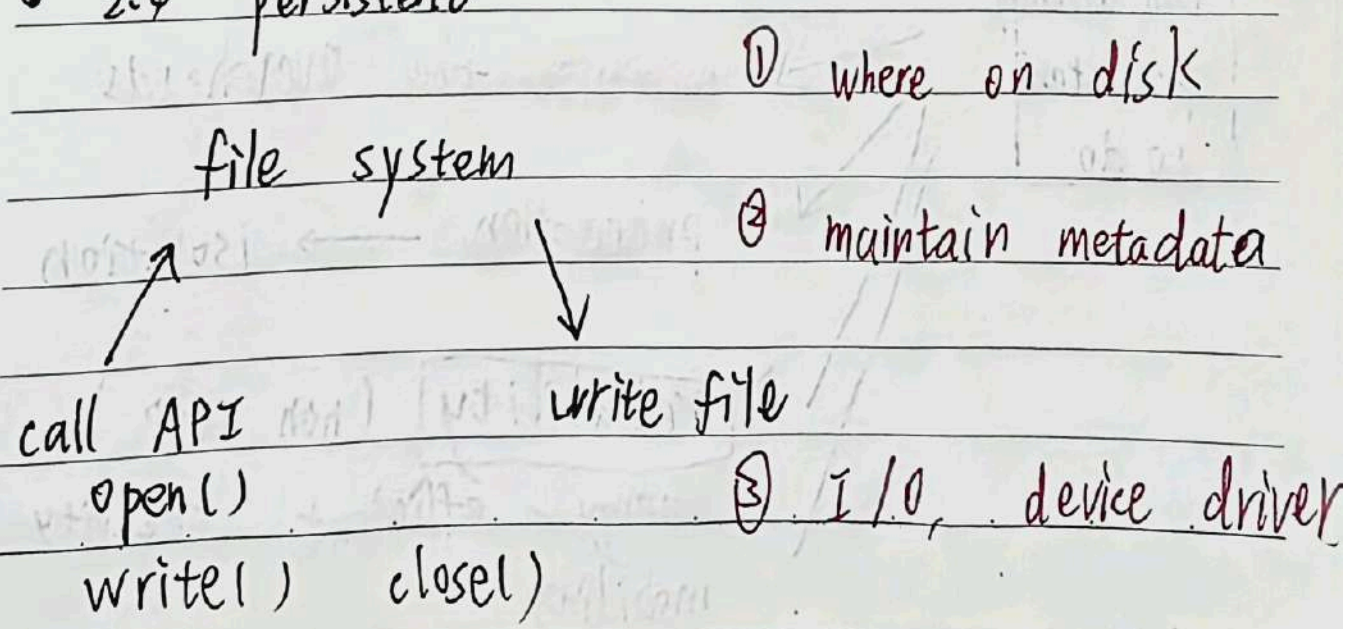 2.4
① where on disk
file system
② maintain metadata
call API
write file
open()
③ I/O, device driver
write() close()